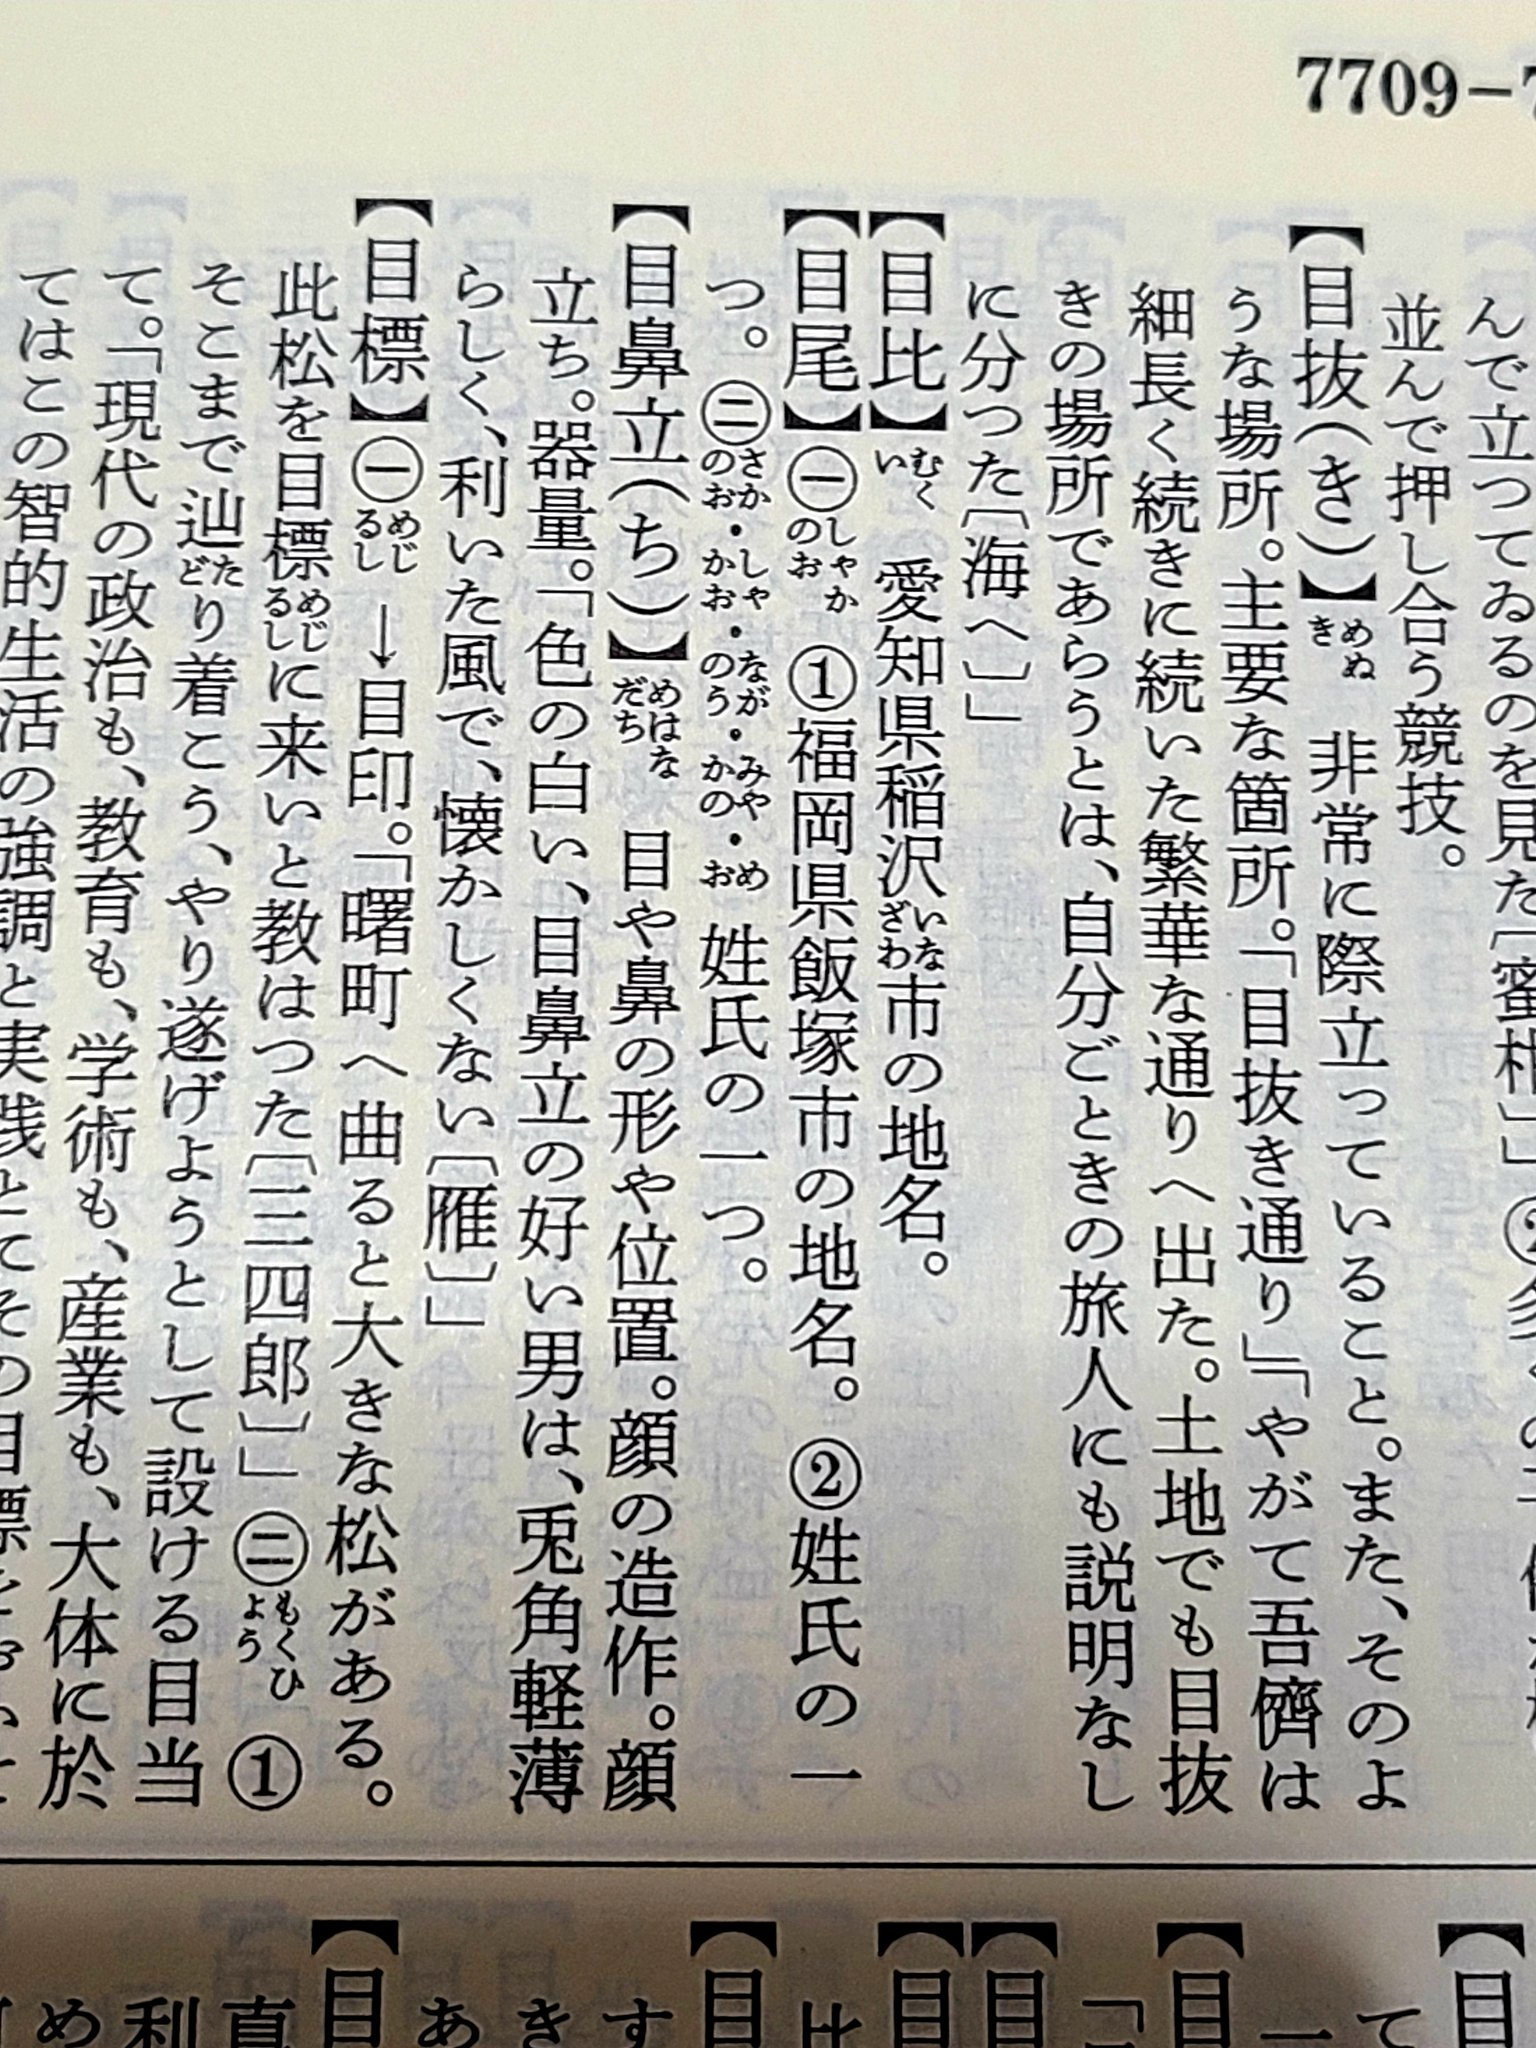 7709-7
んで立つてゐるのを見た〔蜜柑〕」②多くの
並んで押し合う競技。
【目抜(き)】めぬき 非常に際立っていること。また、そのよ
うな場所。主要な箇所。「目抜き通り」「やがて吾儕は
細長く続きに続いた繁華な通りへ出た。土地でも目抜
きの場所であらうとは、自分ごときの旅人にも説明なし
に分つた〔海へ〕」
【目比】むくい 愛知県稲沢いなざわ市の地名。
【目尾】㊀しゃかのお ①福岡県飯塚市の地名。②姓氏の一
つ。㊁さかのお・しゃかお・ながのう・みやかの・めお 姓氏の一つ。
【目鼻立(ち)】めはなだち 目や鼻の形や位置。顔の造作。顔
立ち。器量。「色の白い、目鼻立の好い男は、兎角軽薄
らしく、利いた風で、懐かしくない〔雁〕」
【目標】㊀めじるし →目印。「曙町へ曲ると大きな松がある。
此松を目標めじるしに来いと教はつた〔三四郎〕」㊁もくひょう ①
そこまで辿たどり着こう、やり遂げようとして設ける目当
て。「現代の政治も、教育も、学術も、産業も、大体に於
てはこの智的生活の強調と実践とてその目標と
【目
て
一
【目
「
【目
【目
比
【目
す
き
あ
【目
直
利
め